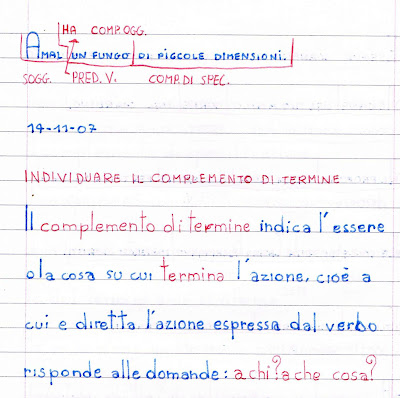 HA COMP.OGG.
AMAL UN FUNGO DI PICCOLE DIMENSIONI.
SOGG. PRED. V. COMP. DI SPEC.
14-11-07
INDIVIDUARE IL COMPLEMENTO DI TERMINE
Il complemento di termine indica l'essere
o la cosa su cui termina l'azione, cioè a
cui e diretta l'azione espressa dal verbo
risponde alle domande: a chi? a che cosa?